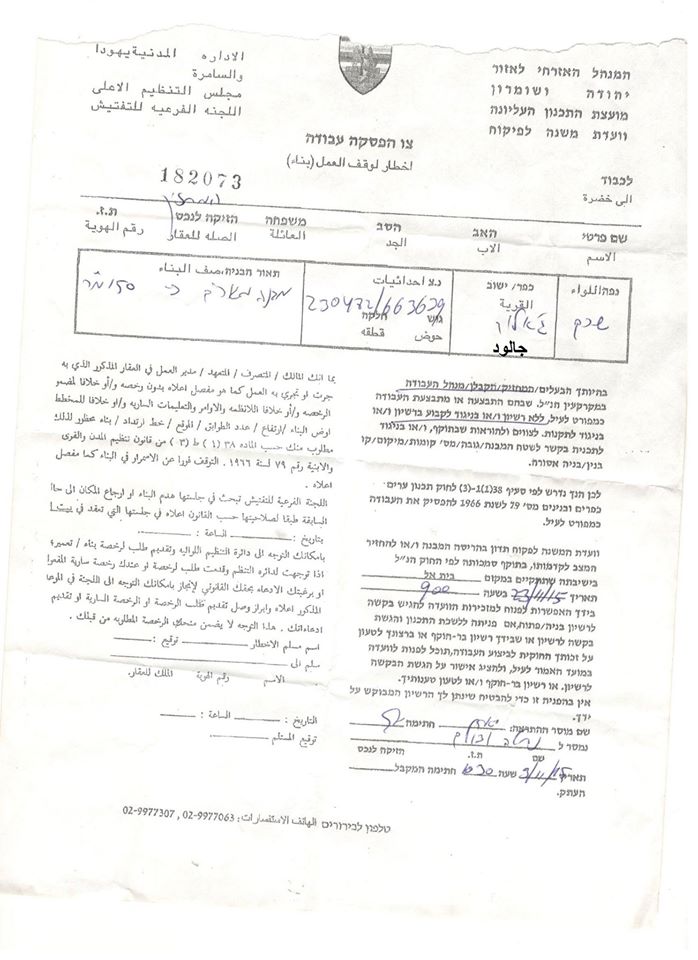 המנהל האזרחי לאזור
יהודה ושומרון
מועצת התכנון העליונה
וועדת משנה לפיקוח
الاداره المدنية يهودا
والسامرة
مجلس التنظيم الاعلى
اللجنه الفرعيه للتفتيش
צו הפסקה עבודה
اخطار لوقف العمل (بناء)
182073
לכבוד
الى خضرة
שם פרטי האב הסב משפחה הזיקה לנכס ת.ז.
الاسم الاب الجد العائلة الصله للعقار رقم الهوية
נפה/אللواء כפר/ישוב נ.צ احداثيات תאור הבניה/وصف البناء
القرية
230472/663639
גוש חלקה
حوض قطعه
جالود
150 מ"ר
בהיותך הבעלים/המחזיק/הקבלן/מנהל העבודה
במקרקעין הנ"ל, שבהם התבצעה או מתבצעת העבודה
כמפורט לעיל, ללא רשיון ו/או בניגוד לקבוע ברשיון ו/או
בניגוד לתקנות, לצווים ולהוראות שבתוקף, ו/או בניגוד
לתכנית בקשר לשטח המבנה/גובה/מס' קומות/מיקום/קו
בנין/בניה אסורה.
לכן הנך נדרש לפי סעיף 38(1)-(3) לחוק תכנון ערים
כפרים ובנינים מס' 79 לשנת 1966 להפסיק את העבודה
כמפורט לעיל.
וועדת המשנה לפקוח תדון בהריסה המבנה ו/או להחזיר
המצב לקדמותו, בתוקף סמכותה לפי החוק הנ"ל
בישיבתה שתתקיים במקום בית אל
תאריך 23/11/15 בשעה 900
בידך האפשרות לפנות למזכירות הוועדה להגיש בקשה
לרשיון בניה/פתוח, אם פניתה ללשכת התכנון והגשת
בקשה לרשיון או שבידך רשיון בר-תוקף או ברצונך לטעון
על זכותך החוקית לביצוע העבודה, תוכל לפנות לוועדה
במועד האמור לעיל, ולהציג אישור על הגשת הבקשה
לרשיון, או רשיון בר-תוקף ו/או לטעון טענותיך.
אין בהפניה זו כדי להבטיח שינתן לך הרשיון המבוקש על
ידך.
שם מוסר ההתראה: חתימה
נמסר ל
שם ת.ז. הזיקה לנכס
תאריך 9/11/15 שעה 1030 חתימה המקבל
העתק.
بما انك المالك / المتصرف / المتعهد / مدير العمل في العقار المذكور الذي به
جرت او تجري به العمل كما هو مفصل اعلاه بدون رخصه و/أو خلافا لمضمون
الرخصه و/أو خلافا للانظمه والاوامر والتعليمات الساريه و/او خلافا للمخطط
اوض البناء /ارتفاع / عدد الطوابق / الموقع / خط ارتداد / بناء محظور لذلك
مطلوب منك حسب الماده ٣٨ (١) ط (٣) من قانون تنظيم المدن والقرى
والابنية رقم ٧٩ لسنة ١٩٦٦. التوقف فورا عن الاستمرار في البناء كما مفصل
اعلاه.
اللجنة الفرعية للتفتيش تبحث في جلستها هدم البناء او ارجاع المكان الى حالته
السابقة طبقا لصلاحيتها حسب القانون اعلاه في جلستها التي تعقد في
بتاريخ: الساعة:
بامكانك التوجه الى دائرة التنظيم اللوائيه وتقديم طلب لرخصة بناء / تعمير؛
اذا توجهت لدائره التنظم وقدمت طلب لرخصة او عندك رخصة سارية المفعول
او برغبتك الادعاء بحقك القانوني لإنجاز بامكانك التوجه الى اللجنة في الموعد
المذكور اعلاه وابراز وصل تقديم طلب الرخصة او الرخصة السارية او تقديم
ادعاءاتك. هذا التوجه لا يضمن منحك الرخصة المطلوبه من قبلك.
اسم مسلم الاخطار توقيع:
سلم الى
الاسم رقم الهوية الملك للعقار.
التاريخ: الساعة:
توقيع المستلم
טלפון לבירורים الهاتف الاستفسارات: 02-9977063, 02-9977307